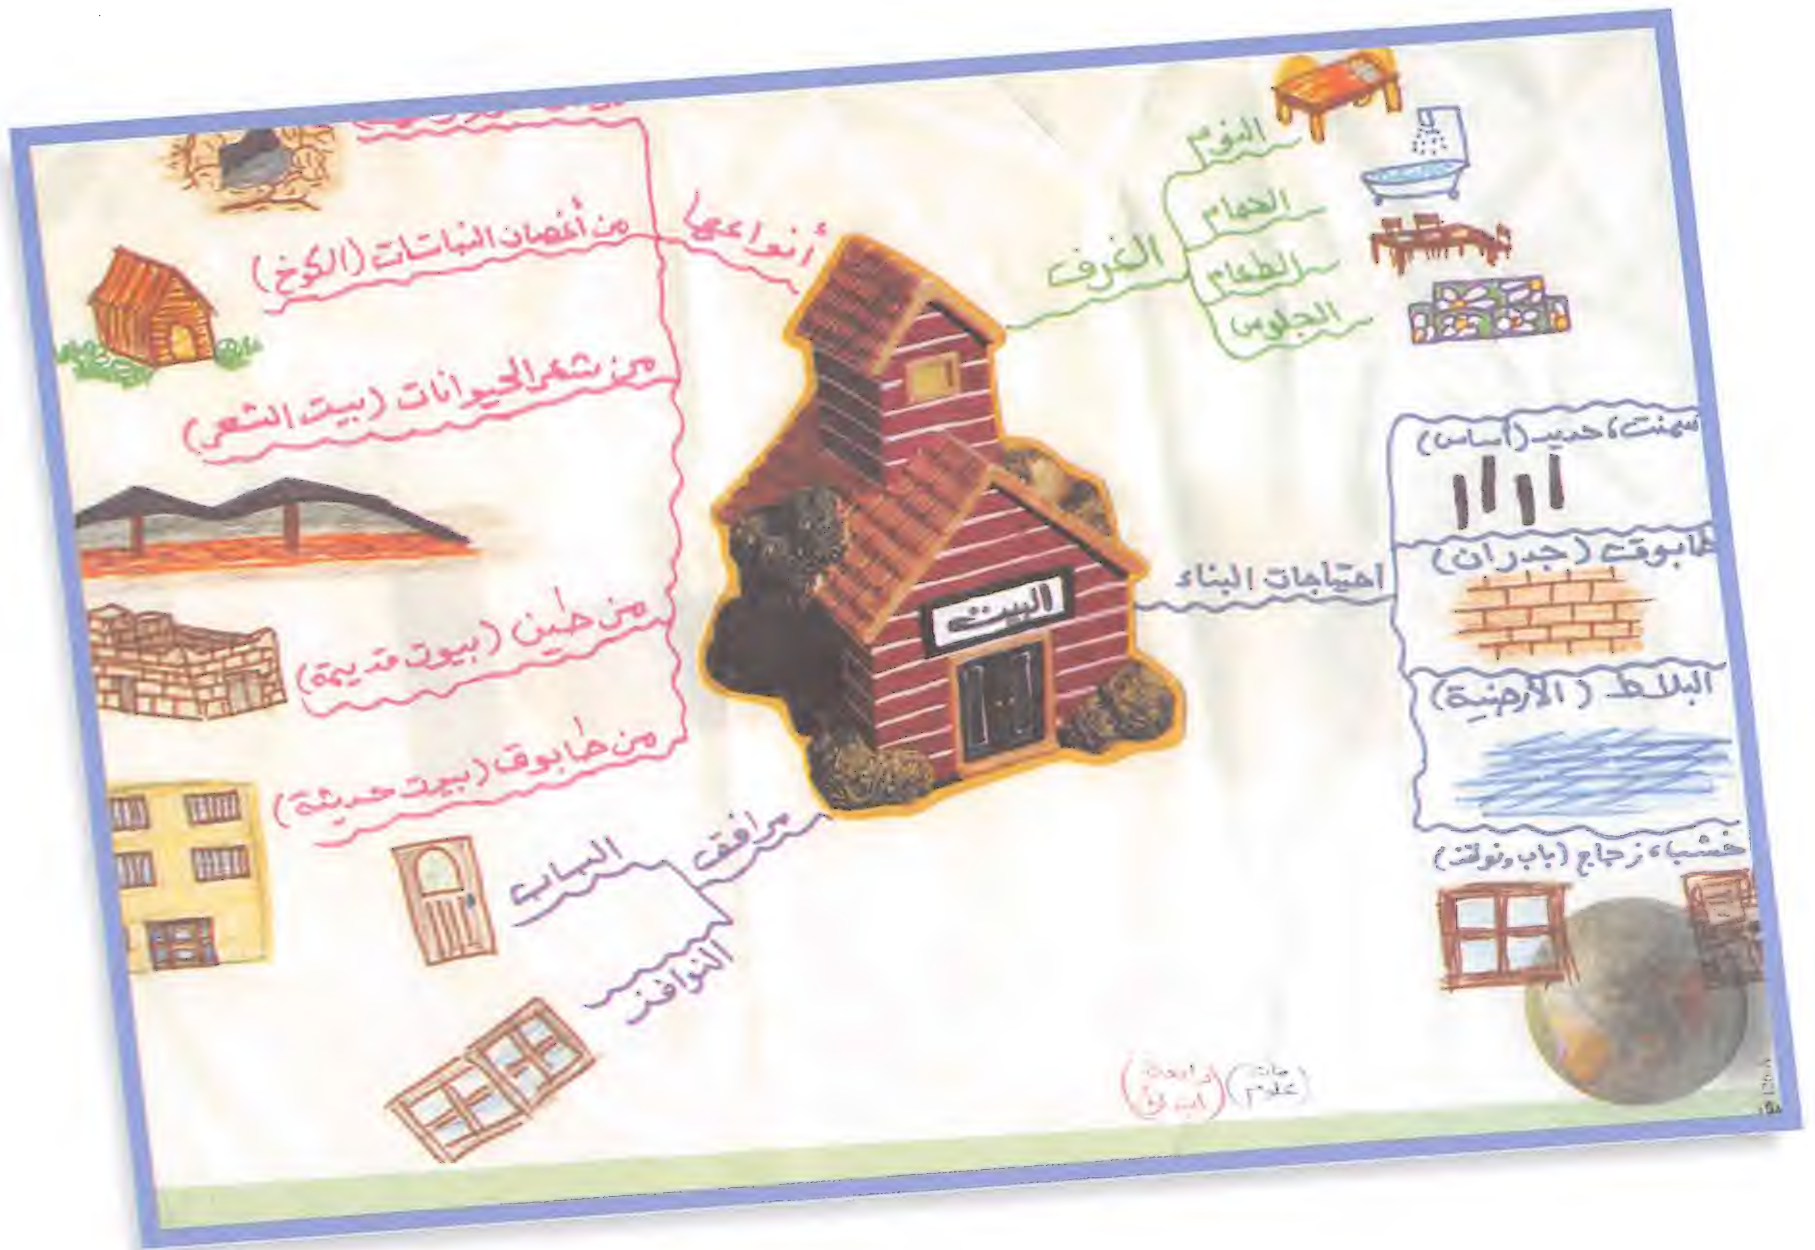 البيت
الغرف
النوم
الحمام
الطعام
الجلوس
احتياجات البناء
سمنت، حديد (أساس)
طابوق (جدران)
البلاط (الأرضية)
خشب، زجاج (باب ونوافذ)
مرافق
الباب
النوافذ
أنواعها
من أغصان النباتات (الكوخ)
من شعر الحيوانات (بيت الشعر)
من طين (بيوت قديمة)
من طابوق (بيوت حديثة)
علوم
رابعة